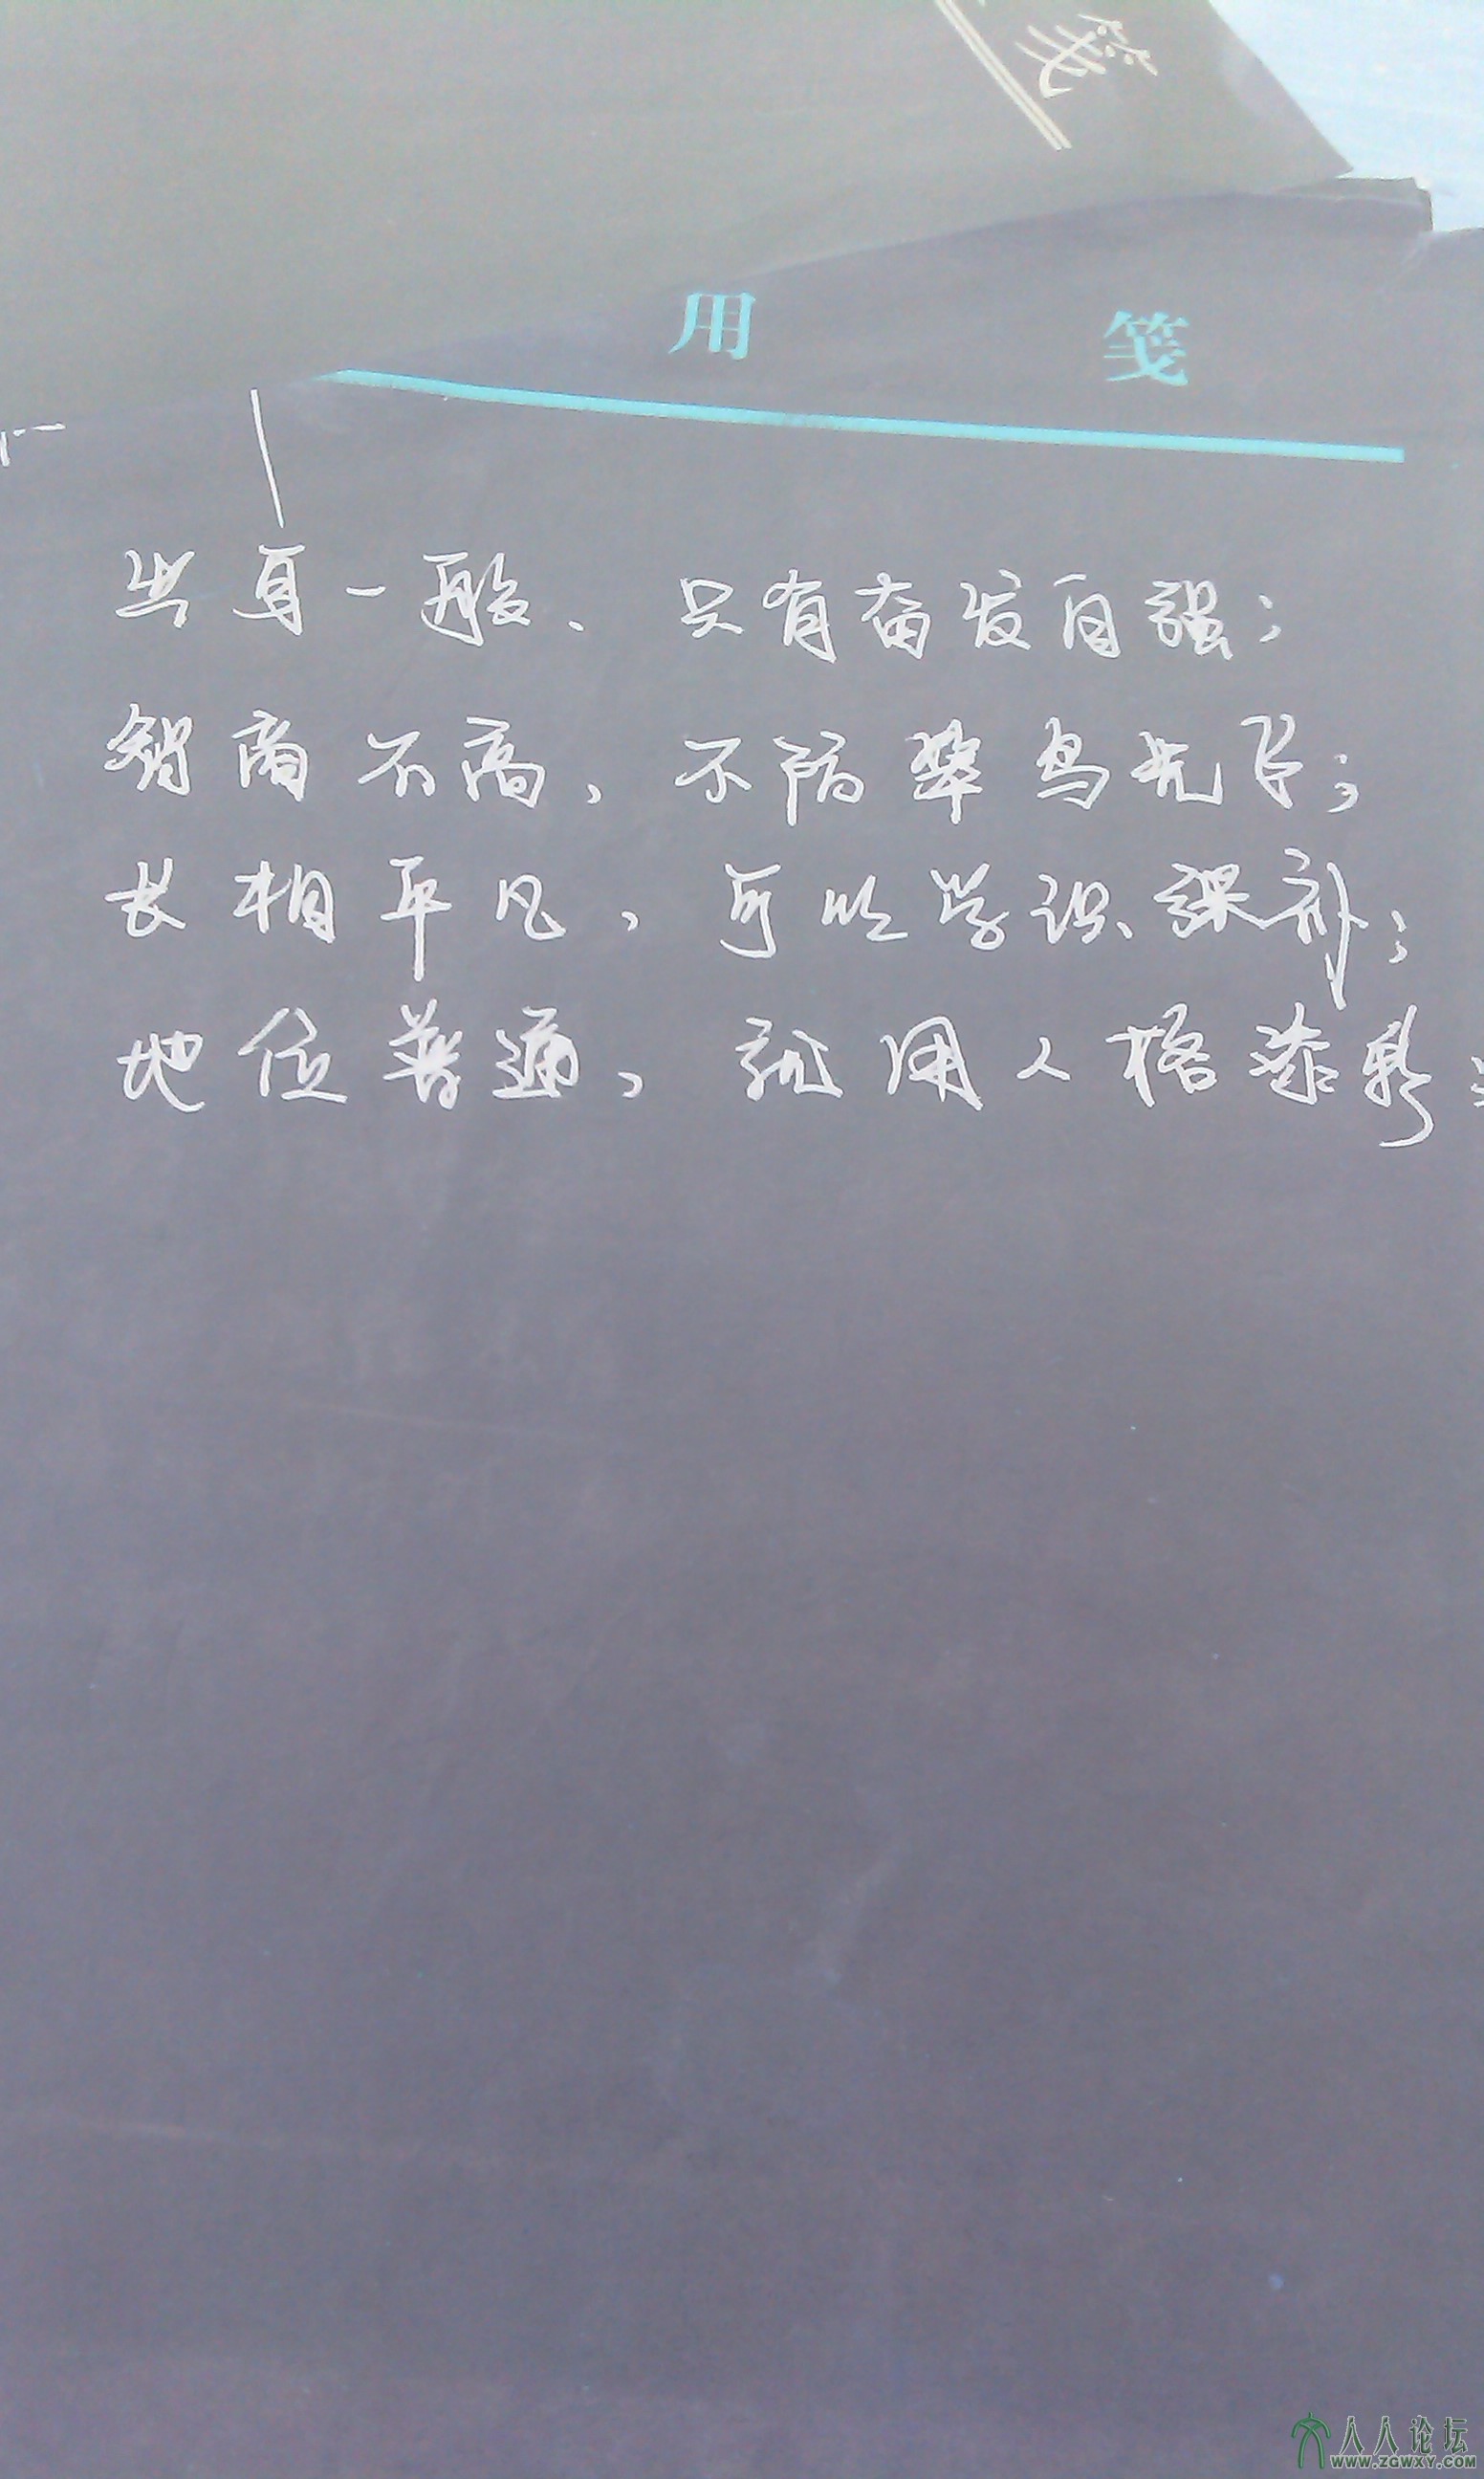 笺
用 笺
出身一般、只有奋发自强；
智商不高，不防笨鸟先飞；
长相平凡，可以学识课补；
地位普通，就用人格添彩；
人人论坛
WWW.ZGWXY.COM